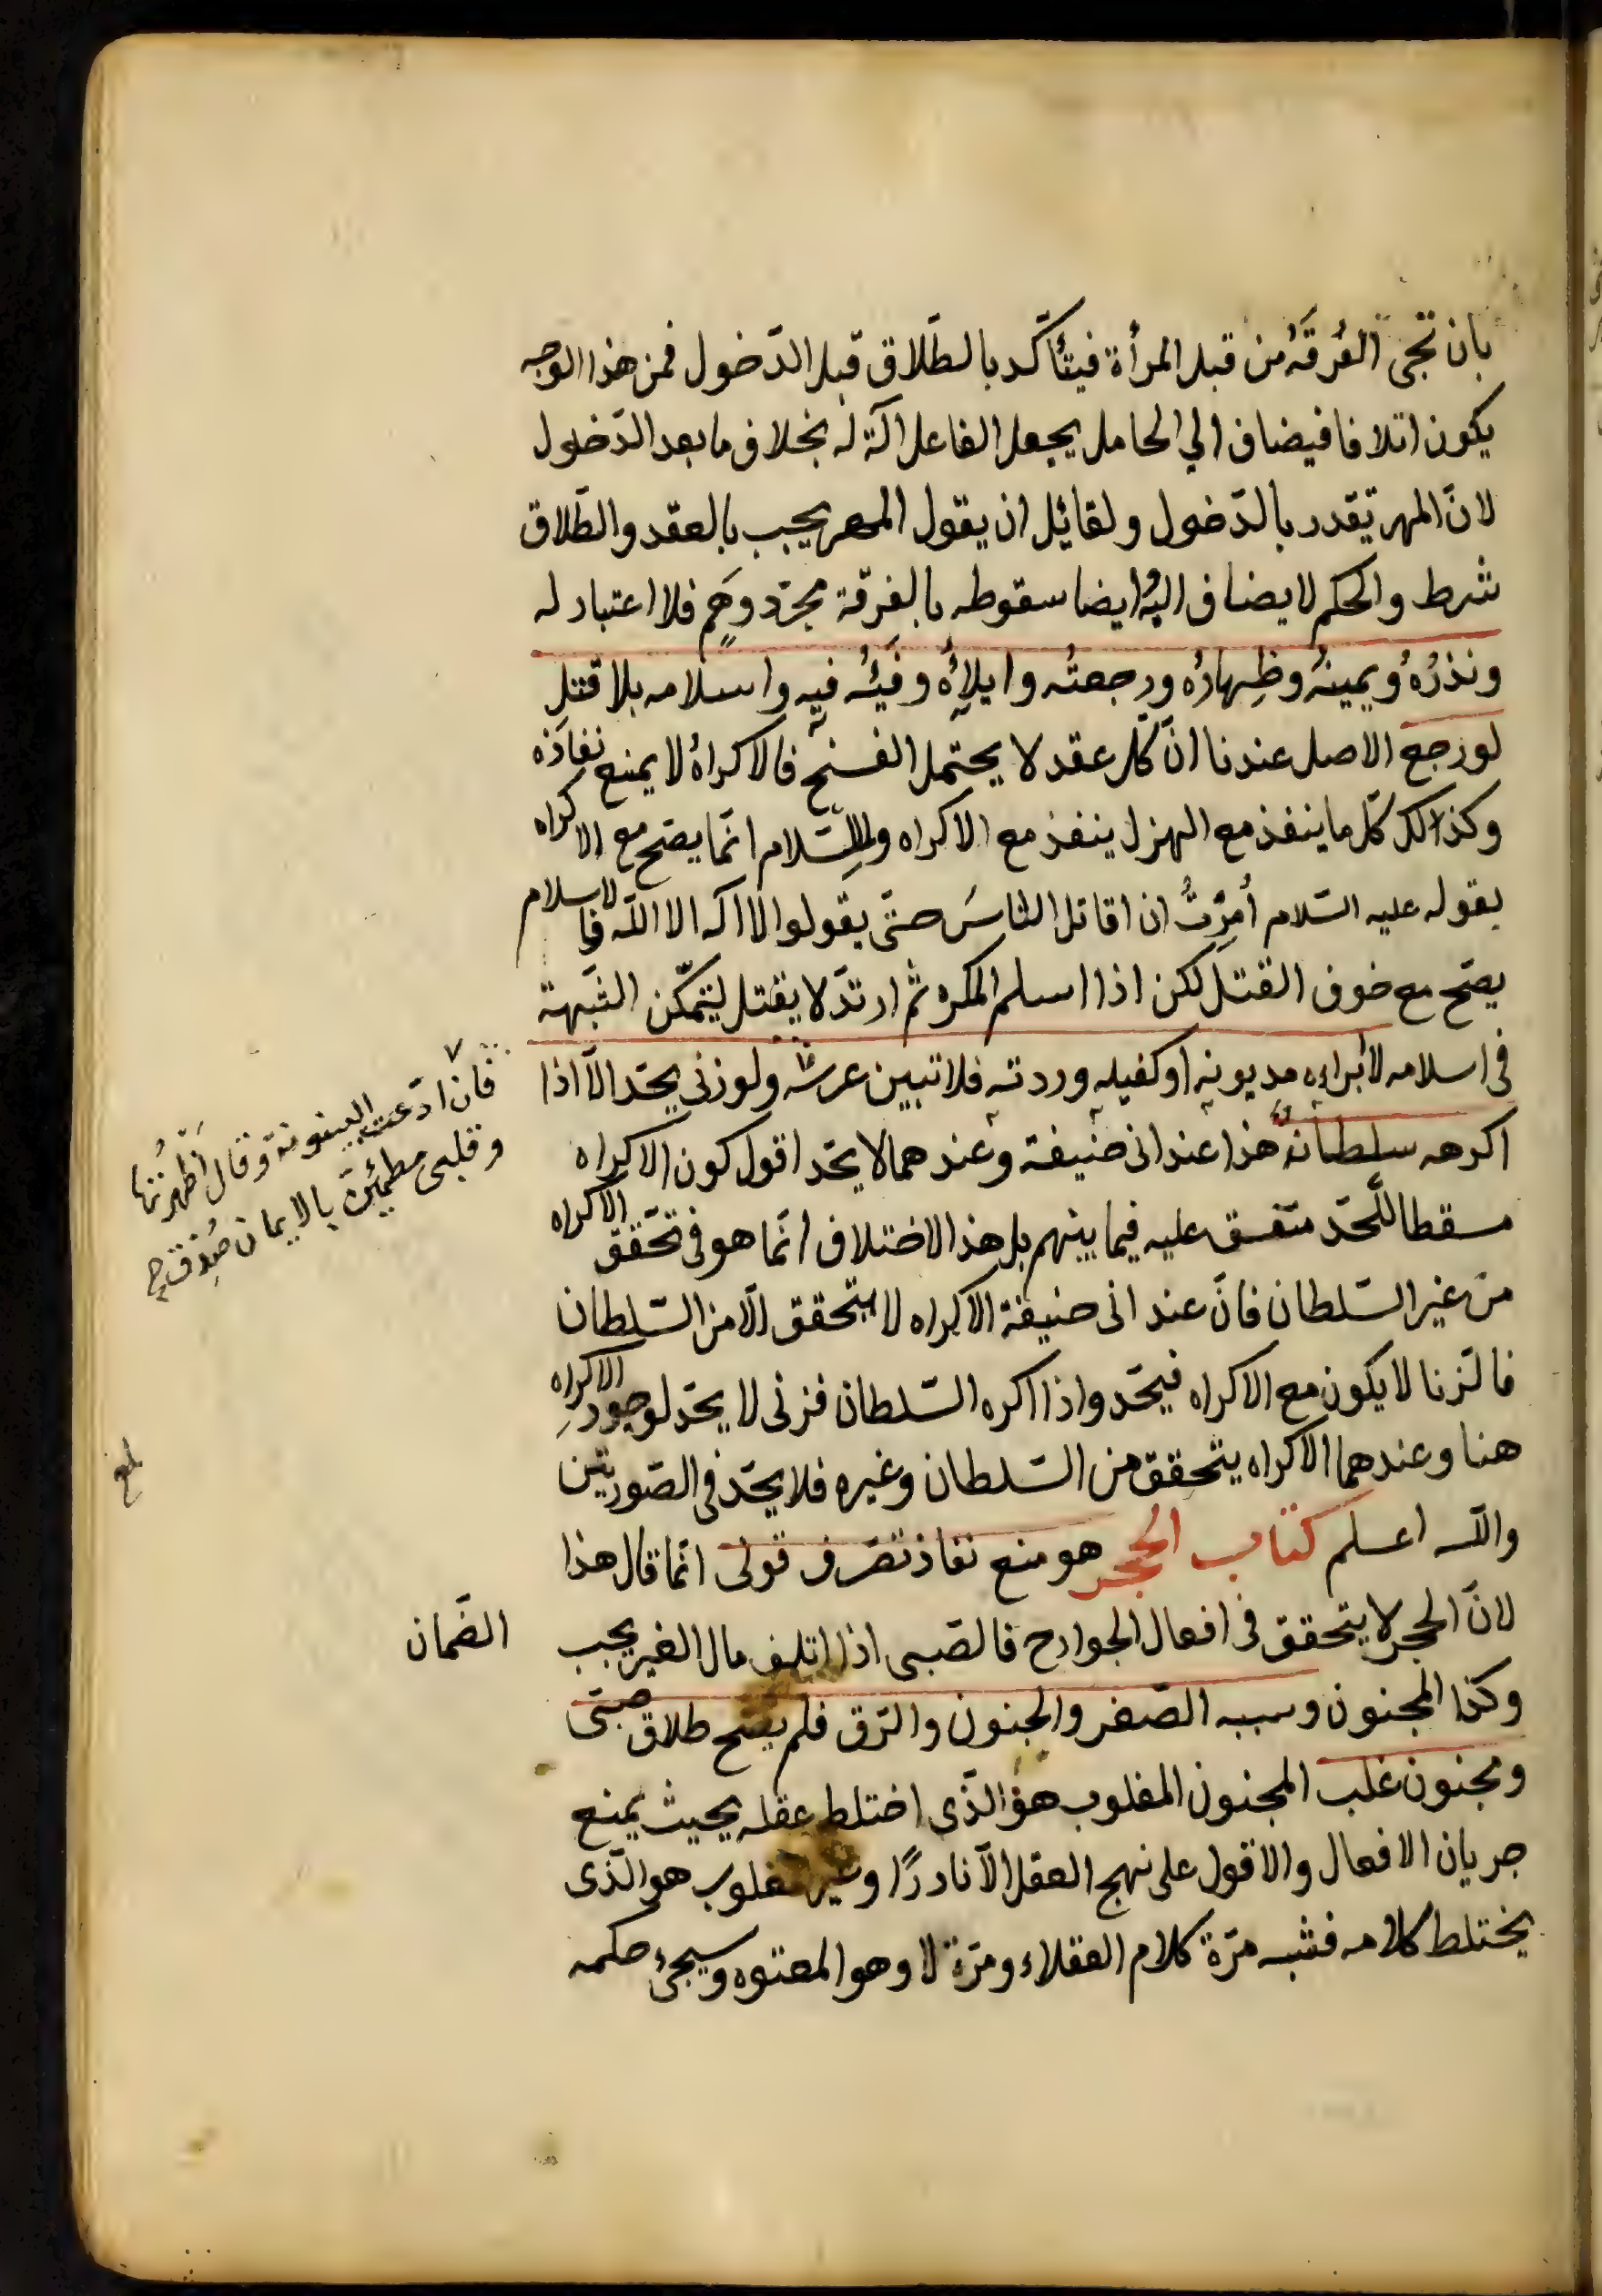 بان تجئ الفُرقَةُ من قبل المرأة فيتأكّد بالطّلاق قبل الدّخول فمن هذا الوجه
يكون اتلافا فيضاف الي الحامل يجعل الفاعل اٰلة له بخلاف ما بعد الدّخول
لانّ المهر تقدر بالدّخول ولقائل ان يقول المهر يجب بالعقد والطّلاق
شرط والحكم لا يضاف اليه وايضا سقوطه بالفرقة مجرّد وَهم فلا اعتبار له
ونذرُهُ ويمينهُ وظِهارُه ورجعتُه وايلاؤُه وفَيْئُه فيه واسلامه بلا قتل
لو رجع الاصل عندنا انّ كلّ عقد لا يحتمل الفسخ فالاكراهُ لا يمنع نفاذه
وكذالك كلّ ما ينفذ مع الهزل ينفذ مع الاكراه والاسلام انّما يصحّ مع الاكراه
بقوله عليه السّلام أُمِرْتُ ان اقاتل النّاسَ حتّى يقولوا لا اله الا اللّه فالاسلام
يصحّ مع خوف القتل لكن اذا اسلم المكره ثم ارتدّ لا يقتل لتمكّن الشّبهة
فى اسلامه لا ابراءه مديونه او كفيله وردته فلا تبين عرسُه ولو زنى يحدّ الّا اذا
اكرهه سلطان هذا عند ابى حنيفة وعندهما لا يحدّ اقول كون الاكراه
مسقطا للحدّ متفق عليه فيما بينهم بل هذا الاختلاف انّما هو فى تحقق الاكراه
من غير السّلطان فانّ عند ابى حنيفة الاكراه لا يتحقق الّا من السّلطان
فالزنا لا يكون مع الاكراه فيحدّ واذا اكره السّلطان فزنى لا يحدّ لوجود الاكراهِ
هنا وعندهما الاكراه يتحقق من السّلطان وغيره فلا يحدّ فى الصّورتين
واللّه اعلم كتاب الحجر هو منع نفاذ تصرّف قولى انّما قال هذا
لانّ الحجر لا يتحقق فى افعال الجوارح فالصّبى اذا اتلف مال الغير يجب
الضّمان
وكذا المجنون وسببه الصّغر والجنون والرّق فلم يصح طلاق صبّى
ومجنون غلب المجنون المغلوب هو الّذى اختلط عقله بحيث يمنع
جريان الافعال والاقول على نهج العقل الّا نادرًا وغير مغلوب هو الّذى
يختلط كلامه فشبه مرّة كلام العقلاء ومرّة لا وهو المعتوه وسيجئ حكمه
فان ادّعت البينونة وقال اظهرتُها
وقلبى مطمئِنّ بالايمان صُدِّق